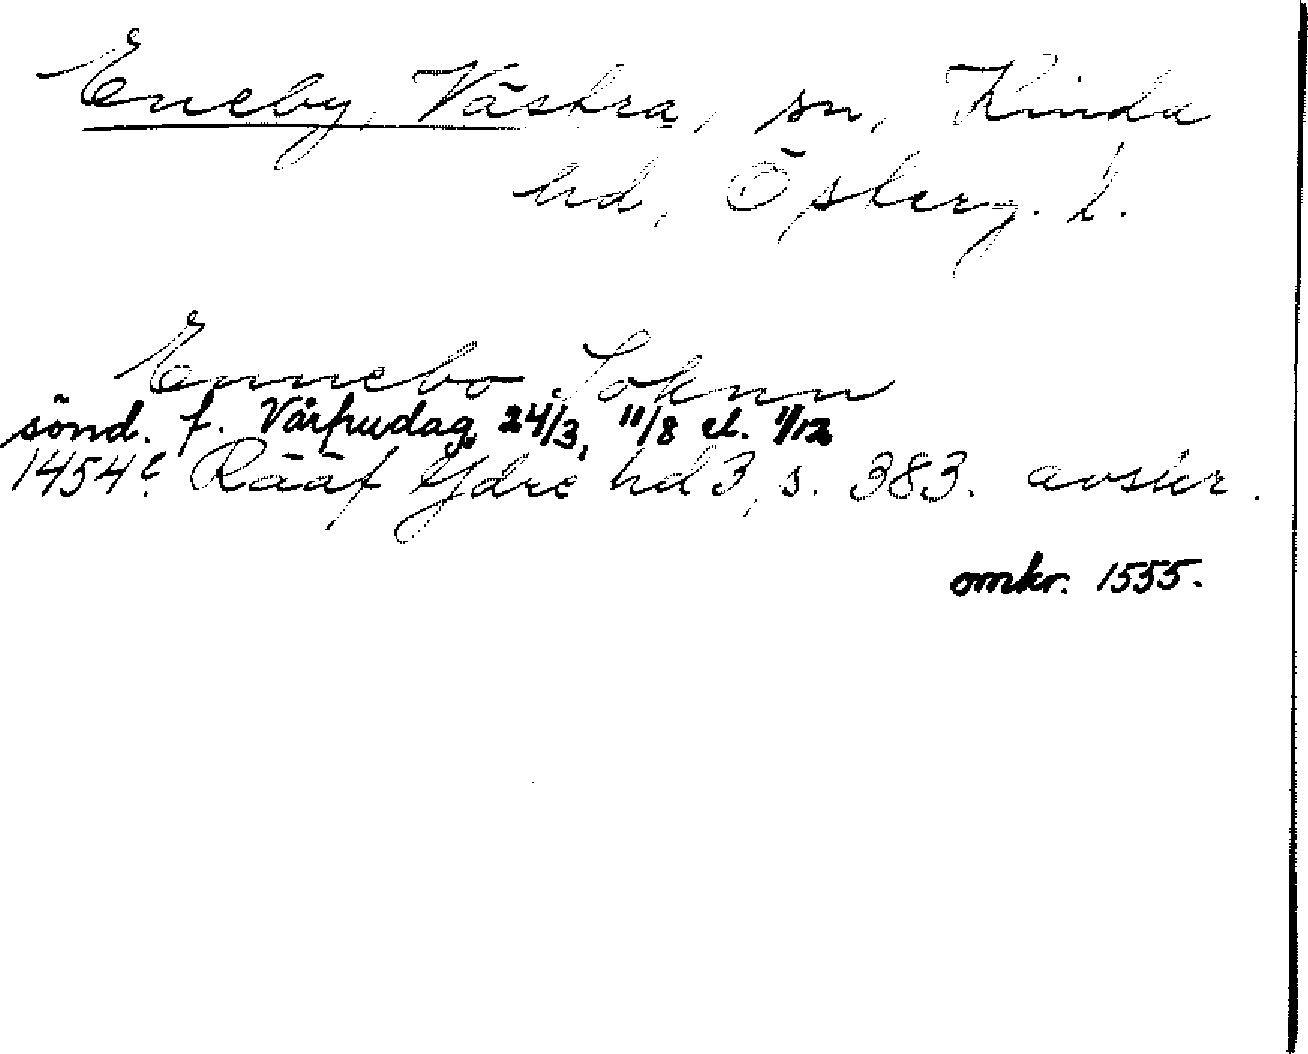 Eneby, Västra, sn, Kinda
hd, Österg. l.
Ennebo Soknn
sönd. f. Vårfrudag, 24/3, 11/8 el. 1/12
1454? Rääf Ydre hd 3, s. 383. avskr.
omkr. 1555.